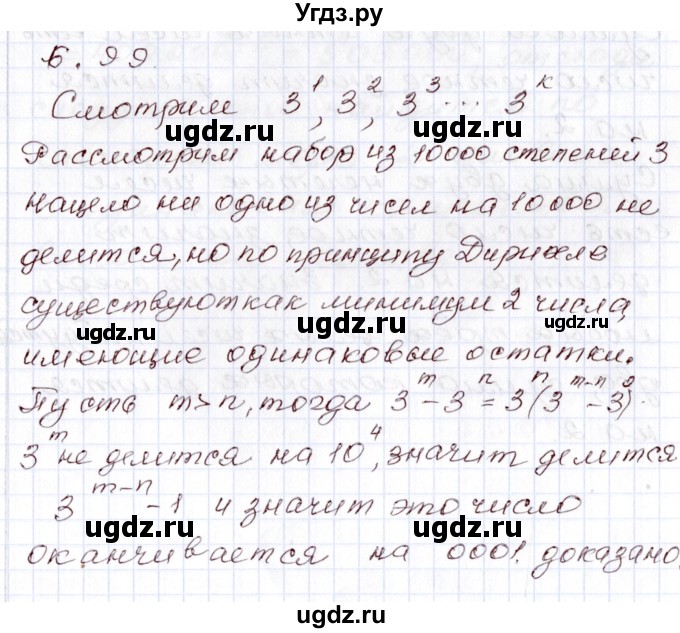 Угдз.ру
6.99
Смотрим 3^1, 3^2, 3^3 ... 3^к
ugdz.ru ugdz.ru
Рассмотрим набор из 10000 степеней 3
нацело ни одно из чисел на 10000 не
делится, но по принципу Дирихле
ugdz.ru
существуют как минимум 2 числа,
ugdz.ru
имеющие одинаковые остатки.
Пусть m>n, тогда 3^m - 3^n = 3^n(3^m-n - 3^0)
ugdz.ru ugdz.ru
3^m не делится на 10^4, значит делится
3^m-n - 1 и значит это число
ugdz.ru ugdz.ru
оканчивается на 0001. доказано.
ugdz.ru